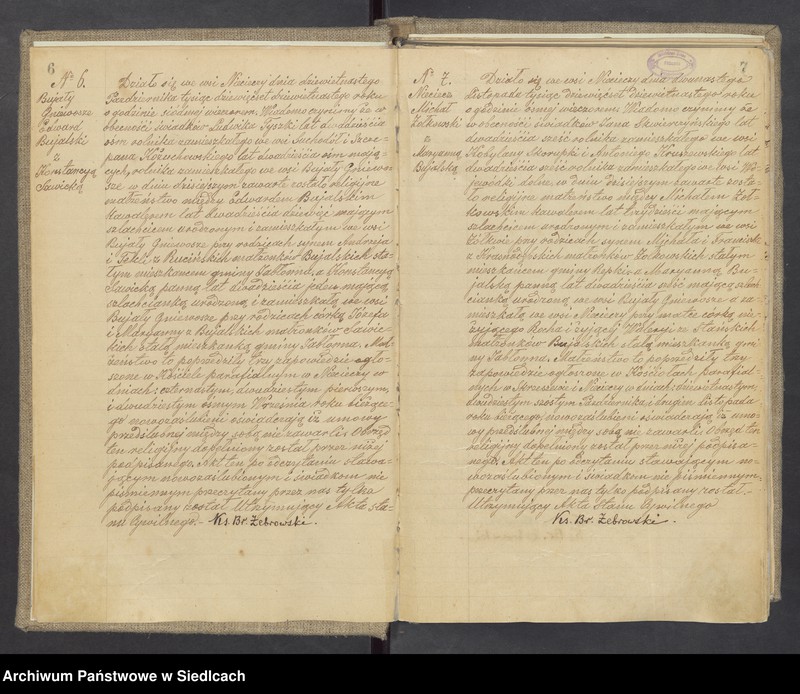 6
№ 6.
Bujały
Gniewosze
Edward
Bujalski
z
Konstancyą
Sawicką
Działo się we wsi Nieciecy dnia dziewietnastego
Października tysiąc dziewięćset dziewietnastego roku
o godzinie siódmej wieczorem. Wiadomo czynimy że w
obecności świadków Ludwika Tyski lat dwadzieścia
ośm rolnika zamieszkałego we wsi Suchodół i Szcze-
pana Korzechowskiego lat dwadzieścia ośm mają-
cych, rolnika zamieszkałego we wsi Bujały Gniewo-
sze w dniu dzisiejszym zawarte zostało religijne
małżeństwo między Edwardem Bujalskim
kawalerem lat dwadzieścia dziewięć mającym
szlachcicem urodzonym i zamieszkałym we wsi
Bujały Gniewosze przy rodzicach synem Andrzeja
i Tekli z Rucińskich małżonków Bujalskich sta-
łym mieszkańcem gminy Jabłonna, a Konstancyą
Sawicką panną lat dwadzieścia jeden mającą
szlachcianką urodzoną i zamieszkałą we wsi
Bujały Gniewosze przy rodzicach córką Józefa
i Maryanny z Bujalskich małżonków Sawic-
kich stałą mieszkanką gminy Jabłonna. Mał-
żeństwo to poprzedziły trzy zapowiedzie ogło-
szone w Kościele parafialnym w Nieciecy w
dniach: czternastym, dwudziestym pierwszym,
i dwudziestym ósmym Września roku bieżące-
go nowozaślubieni oświadczają iż umowy
przedślubnej między sobą nie zawarli. Obrzęd
ten religijny dopełniony został przez niżej
podpisanego. Akt ten po odczytaniu stawa-
jącym nowozaślubionym i świadkom nie
piśmiennym przeczytany przez nas tylko
podpisany został Utrzymujący Akta Sta-
nu Cywilnego. Ks. Br. Żebrowski.
7
№ 7.
Nieciecz
Michał
Żołkowski
z
Maryanną
Bujalską
Działo się we wsi Nieciecy dnia dwunastego
Listopada tysiąc dziewięćset dziewietnastego roku
o godzinie ósmej wieczorem. Wiadomo czynimy że
w obecności świadków Jana Skwierczyńskiego lat
dwadzieścia sześć rolnika zamieszkałego we wsi
Kobylany Skorupki i Antoniego Kruszewskiego lat
dwadzieścia sześć rolnika zamieszkałego we wsi Wy-
dolne, w dniu dzisiejszym zawarte zosta-
ło religijne małżeństwo między Michałem Żoł-
kowskim kawalerem lat trzydzieści mającym
szlachcicem urodzonym i zamieszkałym we wsi
Żółkwi przy rodzicach synem Michała i Franciszk
z małżonków Żołkowskich stałym
mieszkańcem gminy Repki a Maryanną Bu-
jalską panną lat dwadzieścia sześć mającą szlach
cianką urodzoną we wsi Bujały Gniewosze a za
mieszkałą we wsi Nieciecy przy matce córką nie-
żyjącego Rocha i żyjącej Waleryi ze Stańskich
małżonków Bujalskich stałą mieszkanką gminy
gminy Jabłonna. Małżeństwo to poprzedziły trzy
zapowiedzie ogłoszone w Kościołach parafial-
nych w Skrzeszewie i Nieciecy w dniach: dziewietnastym,
dwudziestym szóstym Października i drugim Listopada
roku bieżącego, nowozaślubieni oświadczają iż umo-
wy przedślubnej między sobą nie zawarli. Obrzęd ten
religijny dopełniony został przez niżej podpisa-
nego. Akt ten po odczytaniu stawającym no-
wozaślubionym i świadkom nie piśmiennym
przeczytany przez nas tylko podpisany został.
Utrzymujący Akta Stanu Cywilnego
Ks. Br. Żebrowski.
Archiwum Państwowe w Siedlcach